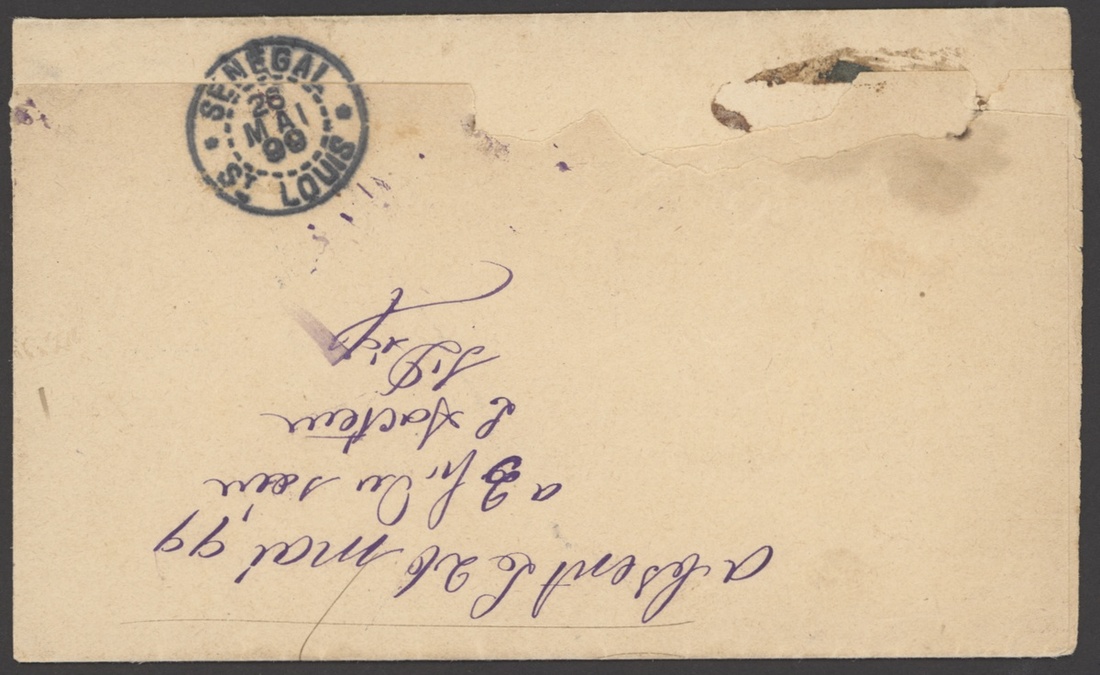 SENEGAL
26
MAI
99
ST LOUIS
absent le 26 mai 99
a 3 h. du soir
le facteur